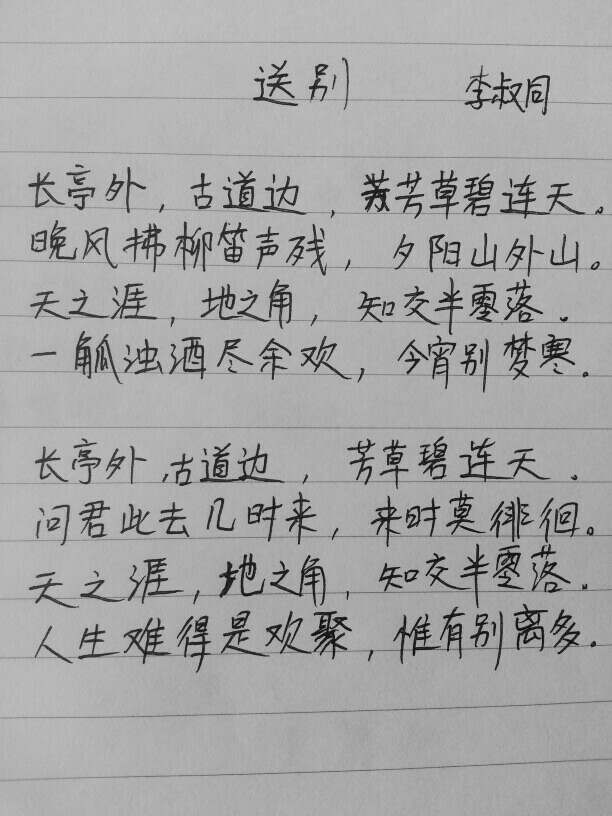 送别 李叔同
长亭外，古道边，芳草碧连天。
晚风拂柳笛声残，夕阳山外山。
天之涯，地之角，知交半零落。
一觚浊酒尽余欢，今宵别梦寒。
长亭外，古道边，芳草碧连天。
问君此去几时来，来时莫徘徊。
天之涯，地之角，知交半零落。
人生难得是欢聚，惟有别离多。